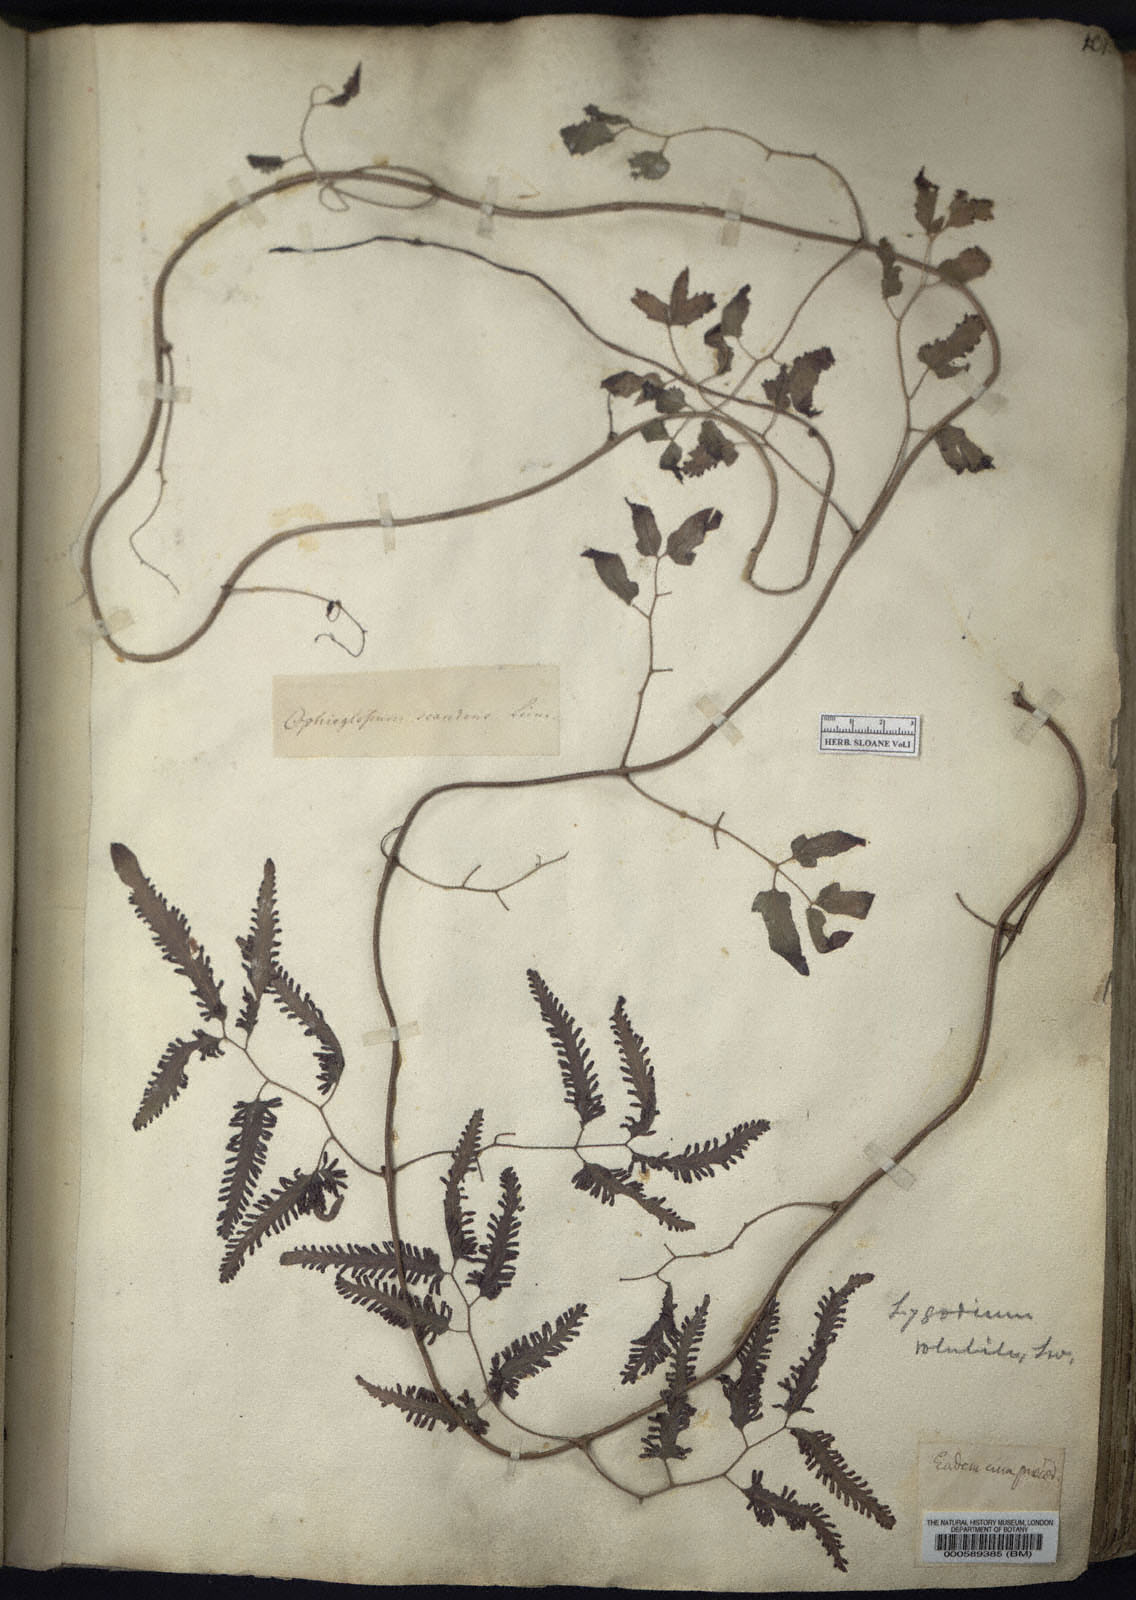 101
Ophioglossum scandens Linn.
HERB. SLOANE Vol.I
Lygodium
volubile, Sw.
Eadem cum præced.
THE NATURAL HISTORY MUSEUM, LONDON
DEPARTMENT OF BOTANY
000589385 (BM)